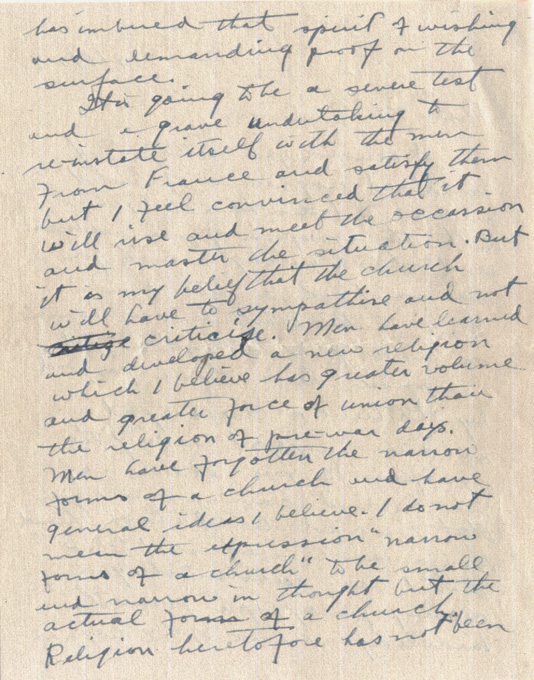 has imbued that spirit of wishing
and demanding proof on the
surface.
It is going to be a severe test
and a grave undertaking to
re-instate itself with the men
from France and satisfy them
but I feel convinced that it
will rise and meet the occassion
and master the situation. But
it is my belief that the church
will have to sympathise and not
critize criticize. Men have learned
and developed a new religion
which I believe has greater volume
and greater force of union than
the religion of pre-war days.
Men have forgotten the narrow
forms of a church and have
general ideas I believe. I do not
mean the expression "narrow
forms of a church" to be small
and narrow in thought but the
actual forms of a church.
Religion heretofore has not been